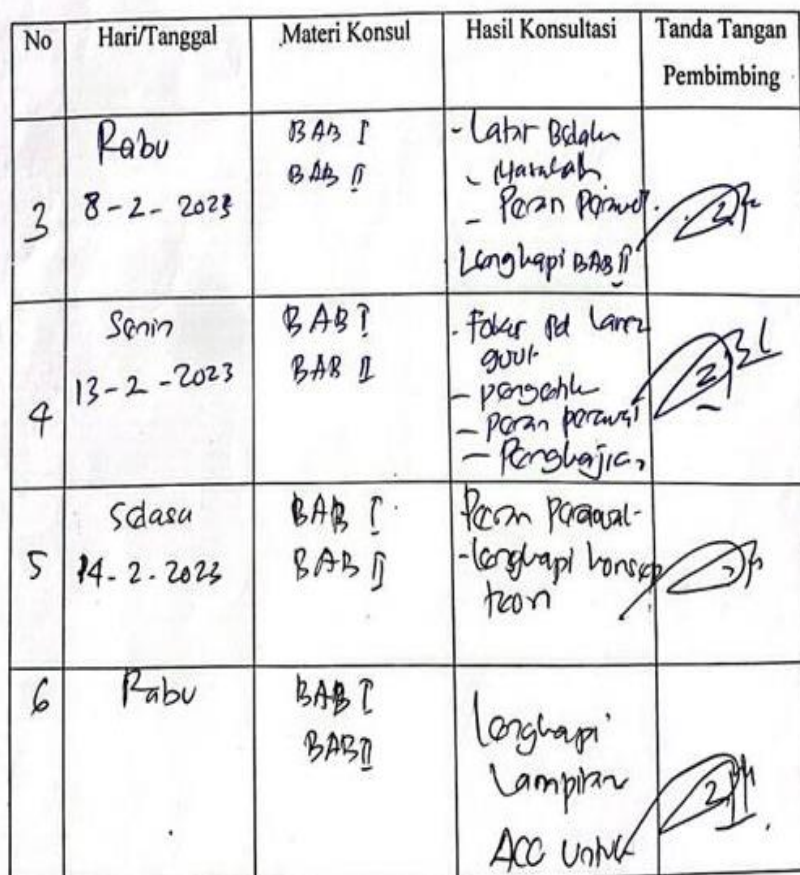 No Hari/Tanggal Materi Konsul Hasil Konsultasi Tanda Tangan
Pembimbing
3
Rabu
8 - 2 - 2023
BAB I
BAB II
- Latar
- Masalah
- Peran
Lengkapi BAB II
4
Senin
13 - 2 - 2023
BAB I
BAB II
- Fokus pd
-
- Peran perawat
- Pengkajian
5
Selasa
14 - 2 - 2023
BAB I
BAB II
Peran Perawat
- lengkapi konsep
teori
6
Rabu
BAB I
BAB II
lengkapi
Lampiran
ACC untuk